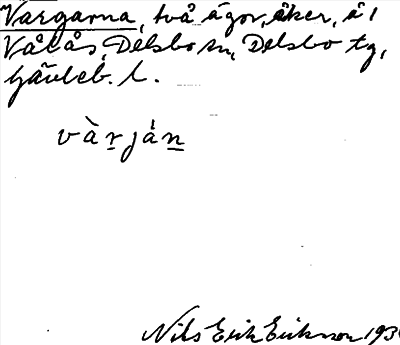 Vargarna, två ägor, åker, å 1
Våsås, Delsbo sn, Delsbo tg,
Gävleb. l.
vàrján
Nils Erik Erikson 193